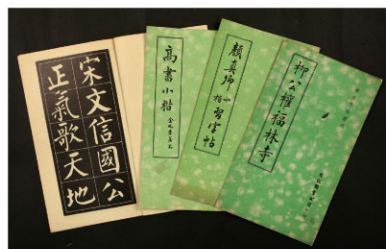 宋文信國公
正氣歌天地
高書小楷
顏真卿小楷習字帖
柳公權福林寺